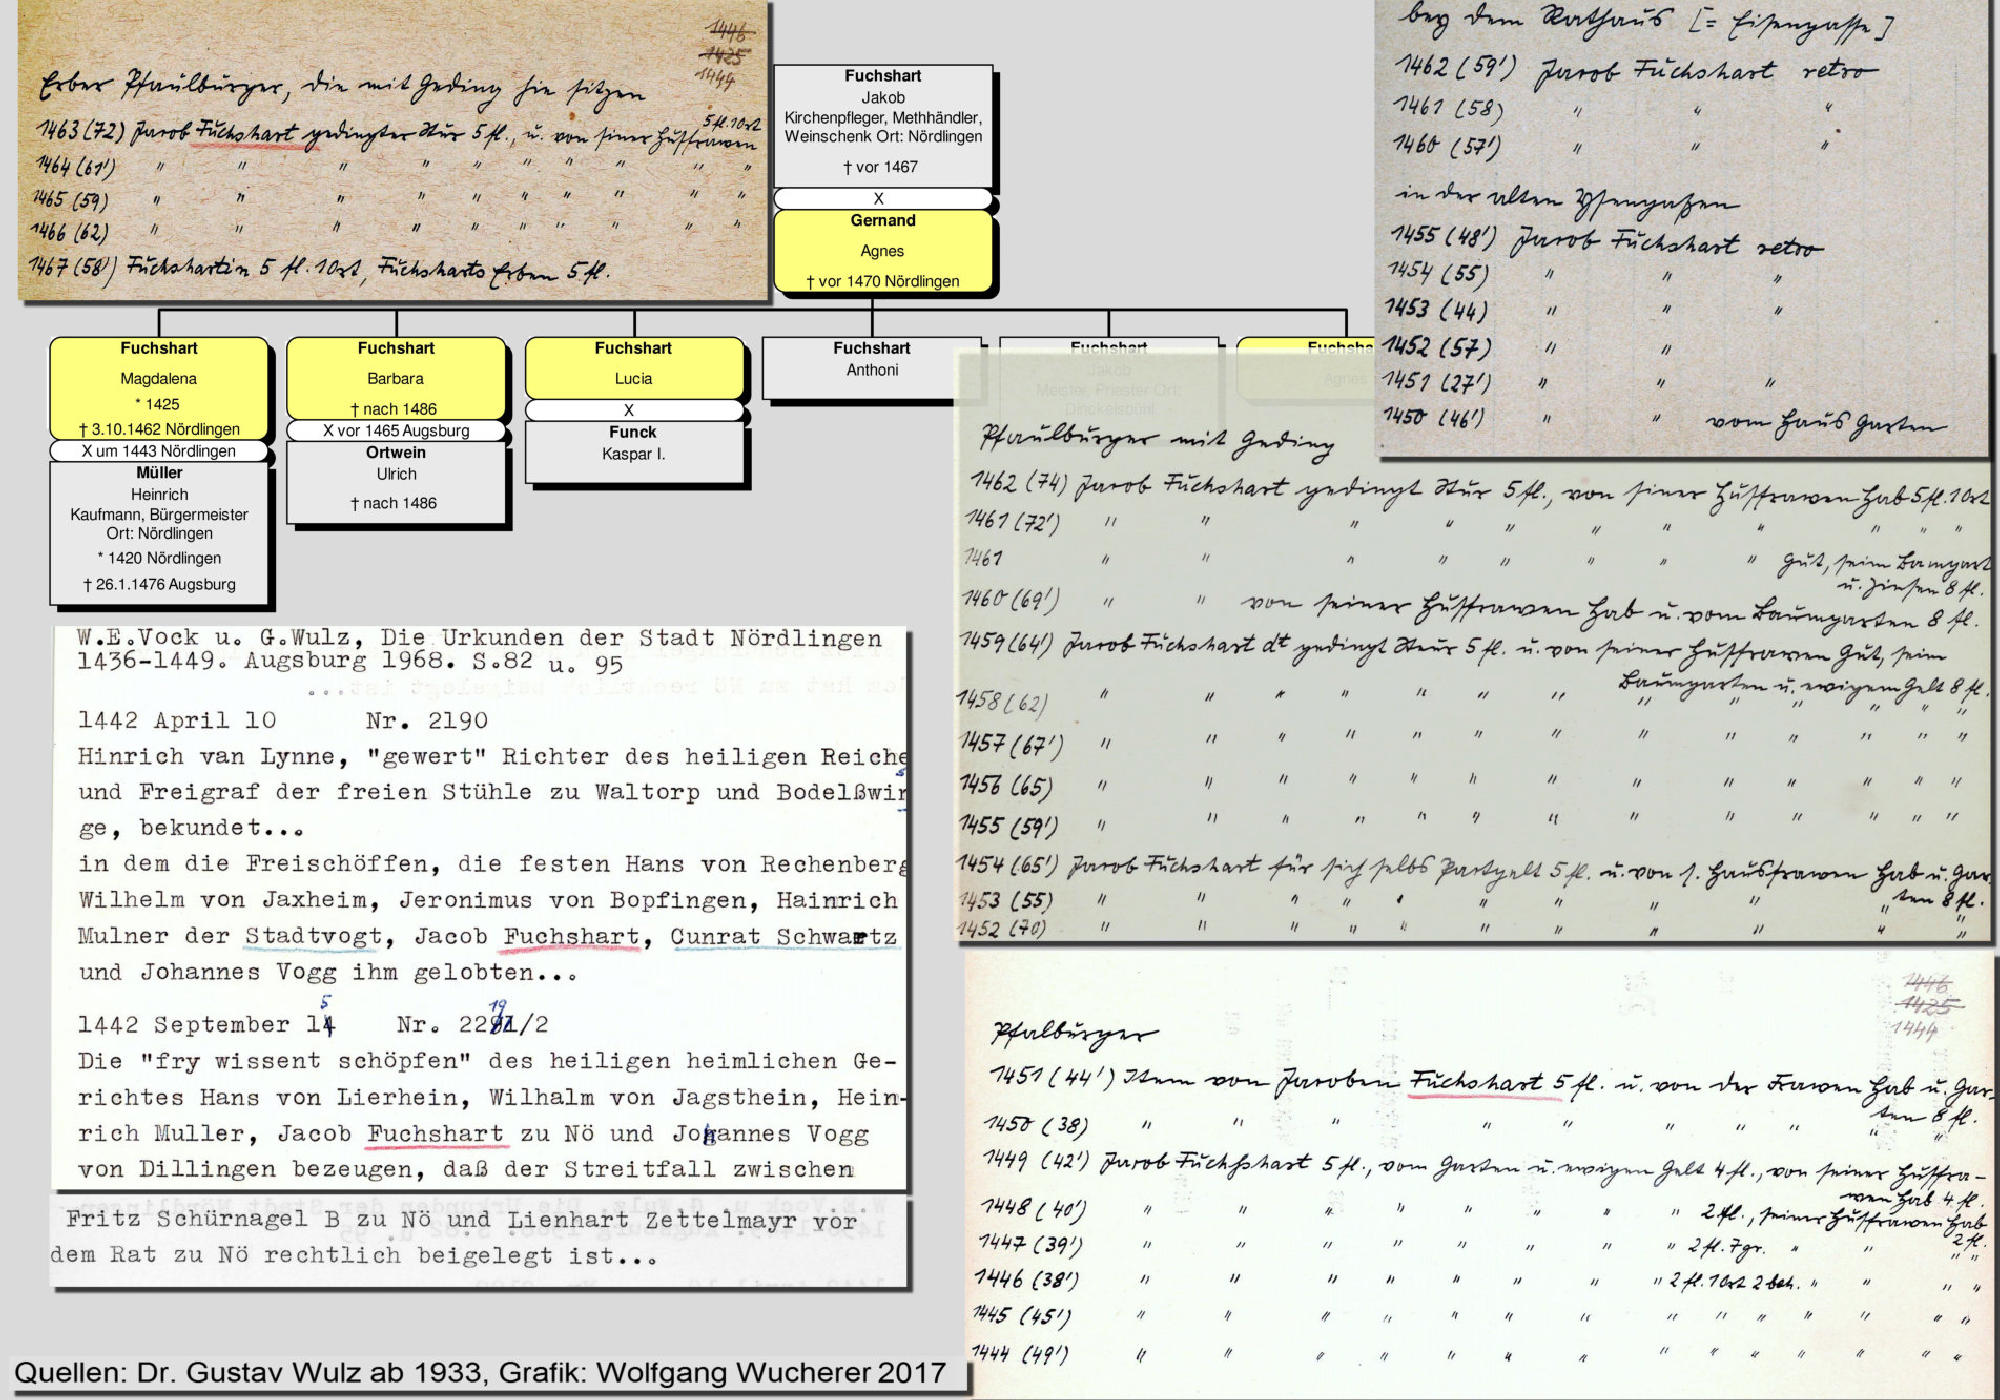 1446
1425
1444
Erber Pfaulburger, die mit Geding hie sitzen
5 fl. 1 Ort
1463 (72) Jacob Fuchshart gedingter Stur 5 fl., u. von siner Hussfrawen
1464 (61') " " " " " " " " " "
1465 (59) " " " " " " " " " "
1466 (62) " " " " " " " " " "
1467 (58') Fuchshartin 5 fl. 1 Ort, Fuchsharts Erben 5 fl.
Fuchshart
Jakob
Kirchenpfleger, Methhändler,
Weinschenk Ort: Nördlingen
† vor 1467
X
Gernand
Agnes
† vor 1470 Nördlingen
Fuchshart
Magdalena
* 1425
† 3.10.1462 Nördlingen
X um 1443 Nördlingen
Müller
Heinrich
Kaufmann, Bürgermeister
Ort: Nördlingen
* 1420 Nördlingen
† 26.1.1476 Augsburg
Fuchshart
Barbara
† nach 1486
X vor 1465 Augsburg
Ortwein
Ulrich
† nach 1486
Fuchshart
Lucia
X
Funck
Kaspar I.
Fuchshart
Anthoni
Fuchshart
Jakob
Meister, Priester Ort:
Dinckelsbühl
Fuchsha
Agnes
bey dem Rathaus [= Eisengasse]
1462 (59') Jacob Fuchshart retro
1461 (58) " " "
1460 (57') " " "
in der alten Ysengaßen
1455 (48') Jacob Fuchshart retro
1454 (55) " " "
1453 (44) " " "
1452 (57) " "
1451 (27') " " "
1450 (46') " " vom Haus Garten
Pfaulburger mit Geding
1462 (74) Jacob Fuchshart gedingt Stur 5 fl., von siner Hussfrawen Hab 5 fl. 1 Ort
1461 (72') " " " " " " " " " " "
1461 " " " " " " " " Gut, seim Bamgart
u. Zinsen 8 fl.
1460 (69') " " von seiner Hussfrawen Hab u. vom Baumgarten 8 fl.
1459 (64') Jacob Fuchshart dt gedingt Steur 5 fl. u. von seiner Hussfrawen Gut, seim
Baumgarten u. ewigem Gelt 8 fl.
1458 (62) " " " " " " " " " " " " "
1457 (67') " " " " " " " " " " " " "
1456 (65) " " " " " " " " " " " " "
1455 (59') " " " " " " " " " " " " "
1454 (65') Jacob Fuchshart für sich selbs Pactgelt 5 fl. u. von s. Hausfrawen Hab u. Gar
ten 8 fl.
1453 (55) " " " " " " " " " "
1452 (70) " " " " " " " " " " "
W.E.Vock u. G.Wulz, Die Urkunden der Stadt Nördlingen
1436-1449. Augsburg 1968. S.82 u. 95
1442 April 10 Nr. 2190
Hinrich van Lynne, "gewert" Richter des heiligen Reiche
s
und Freigraf der freien Stühle zu Waltorp und Bodelßwin
ge, bekundet...
in dem die Freischöffen, die festen Hans von Rechenberg
Wilhelm von Jaxheim, Jeronimus von Bopfingen, Hainrich
Mulner der Stadtvogt, Jacob Fuchshart, Cunrat Schwartz
und Johannes Vogg ihm gelobten...
1442 September 15 Nr. 2219/2
Die "fry wissent schöpfen" des heiligen heimlichen Ge-
richtes Hans von Lierhein, Wilhalm von Jagsthein, Hein-
rich Muller, Jacob Fuchshart zu Nö und Johannes Vogg
von Dillingen bezeugen, daß der Streitfall zwischen
Fritz Schürnagel B zu Nö und Lienhart Zettelmayr vor
dem Rat zu Nö rechtlich beigelegt ist...
1446
1425
1444
Pfalburger
1451 (44') Item von Jacoben Fuchshart 5 fl. u. von der Frawen Hab u. Gar-
ten 8 fl.
1450 (38) " " " " " " " " " "
1449 (42') Jacob Fuchßhart 5 fl., vom Garten u. ewigen Gelt 4 fl., von seiner Hussfra-
wen Hab 4 fl.
1448 (40') " " " " " " " 2 fl., seiner Hussfrawen Hab
2 fl.
1447 (39') " " " " " " " " 2 fl. 7 gr. " " " "
1446 (38') " " " " " " " " 2 fl. 1 Ort 2 beh. " " " "
1445 (45') " " " " " " " " " " " " " "
1444 (49') " " " " " " " " " " " " " "
Quellen: Dr. Gustav Wulz ab 1933, Grafik: Wolfgang Wucherer 2017